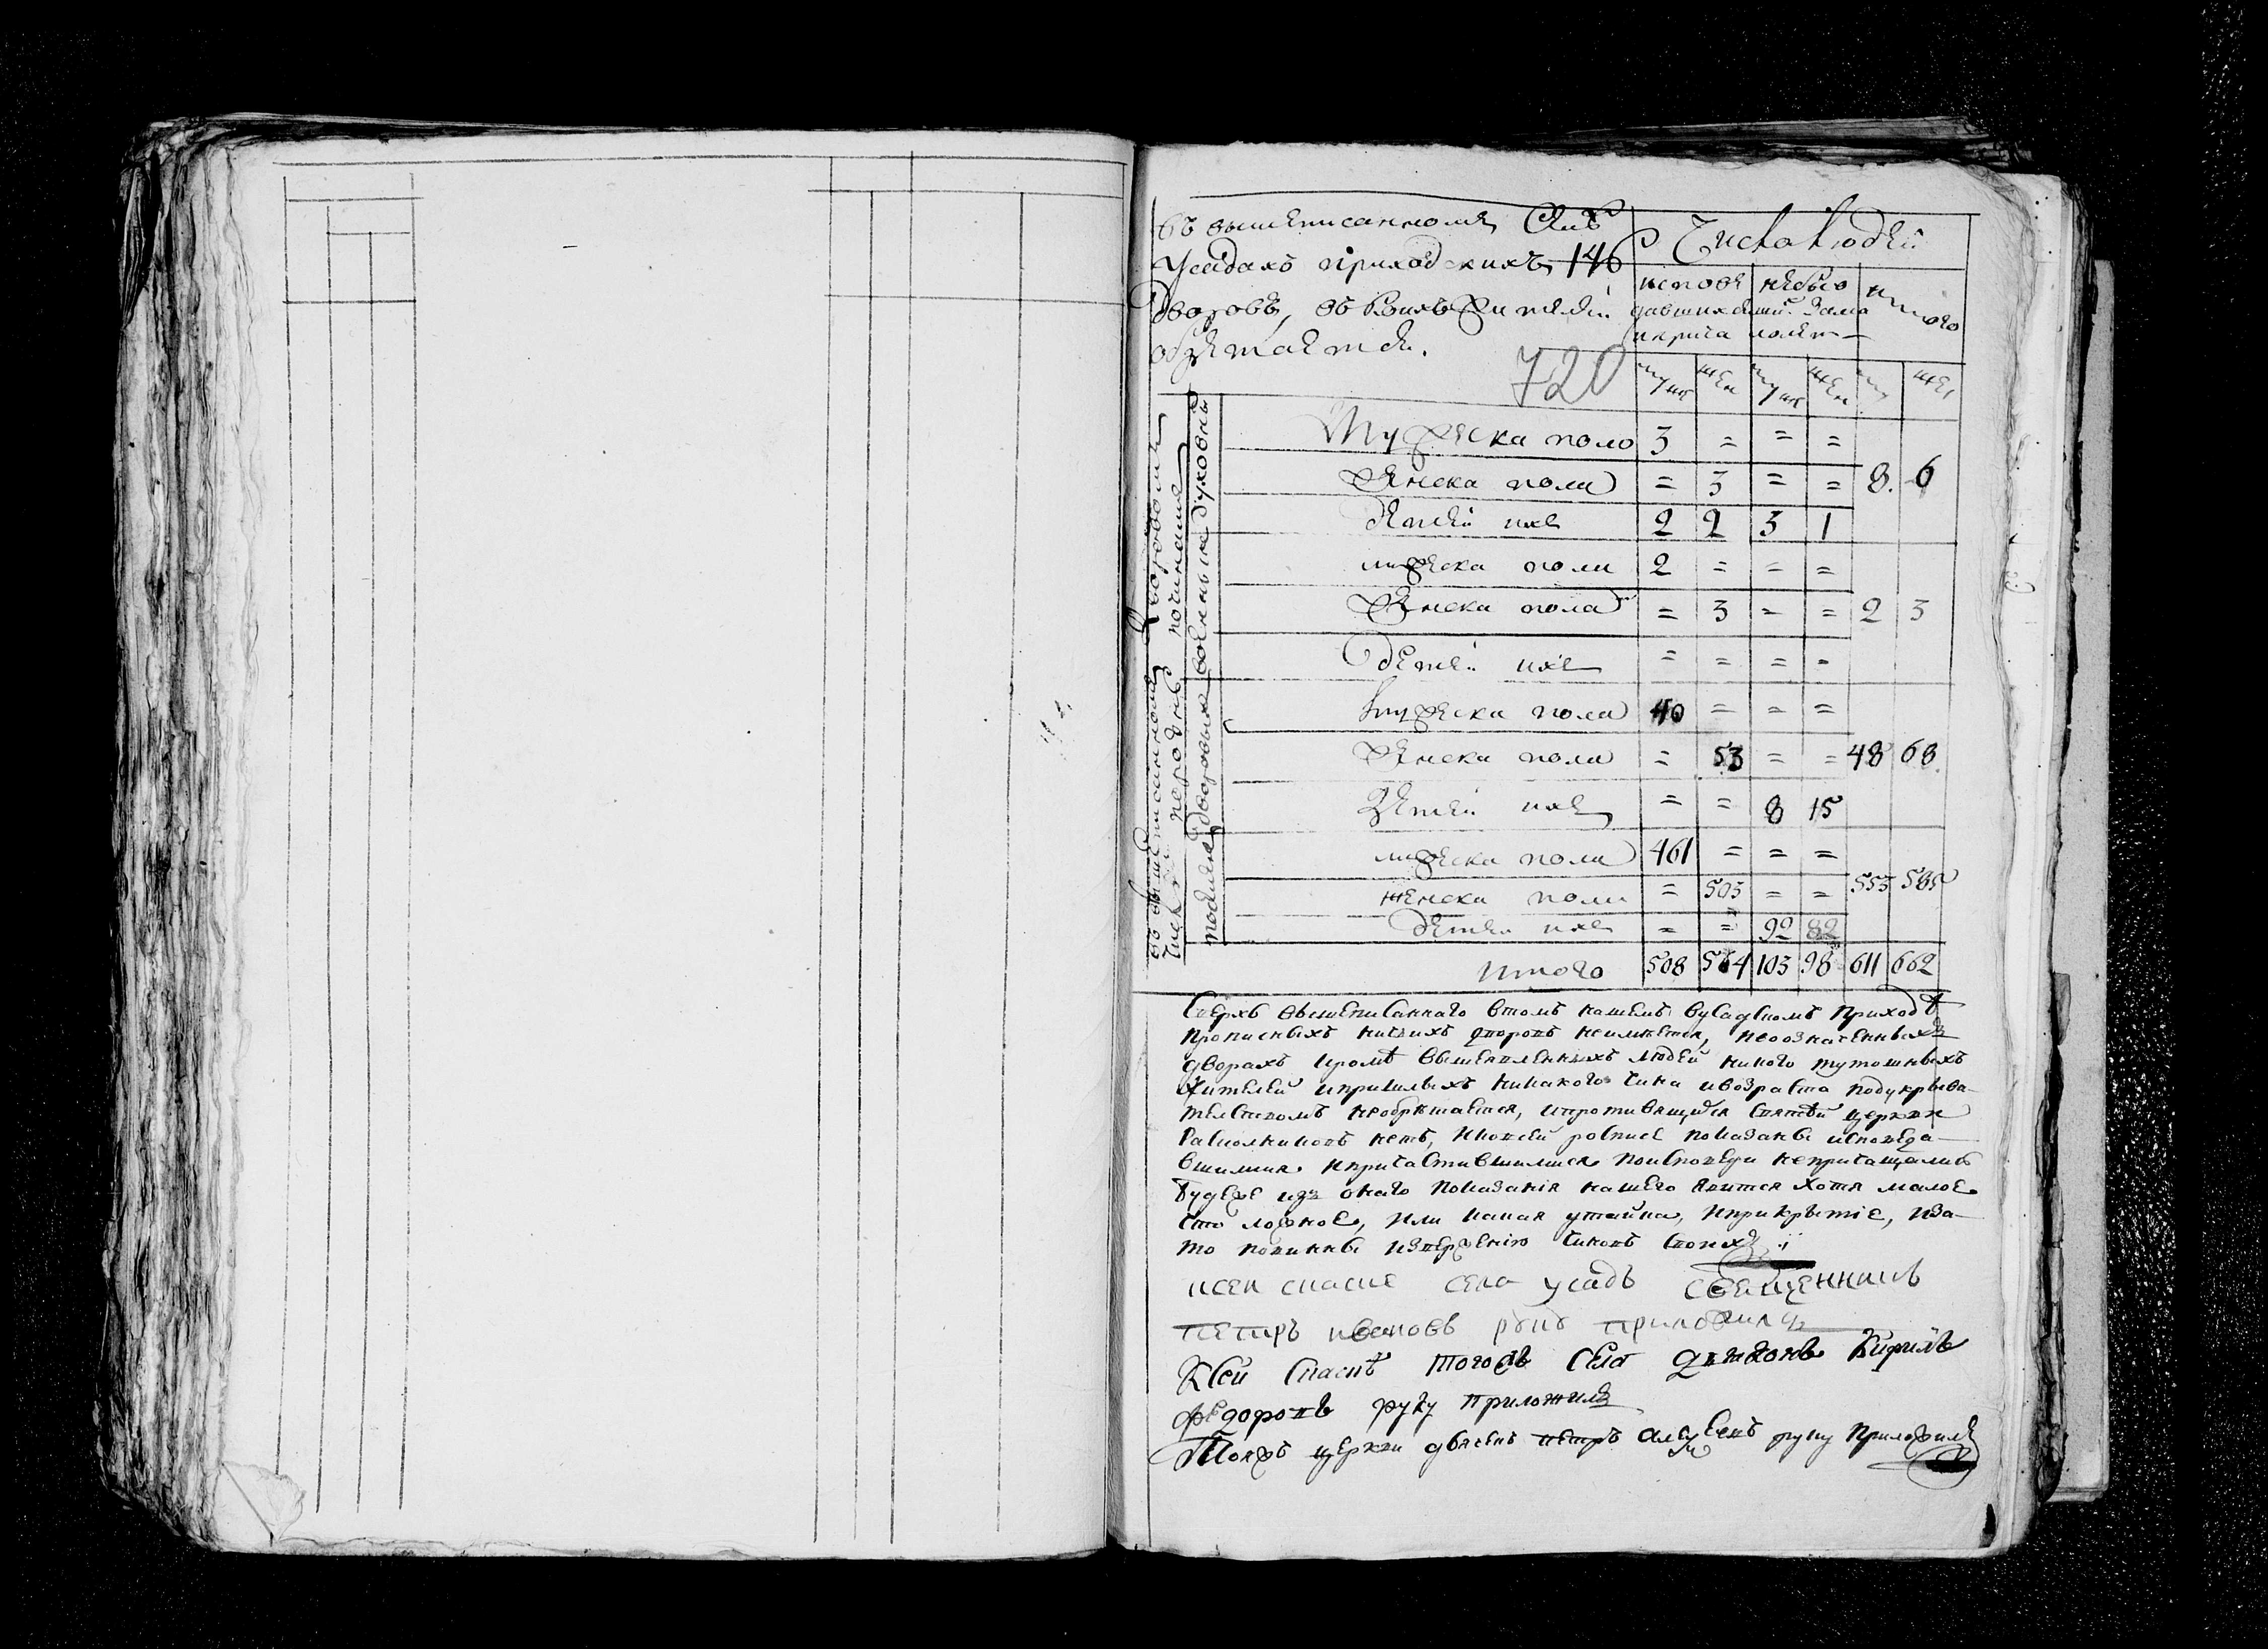 въ вышеписанномъ Селѣ
Усадахъ приходскихъ 146
дворовъ, въ коихъ жителей
обретается.
720
Числа людей
исповедавшихся и прича
небывших за малолет
итого
муж жен муж жен му жен
Мужеска поло 3 = = =
женска пола = 3 = = 8. 6
детей ихъ 2 2 3 1
мужеска пола 2 = = =
женска пола = 3 = = 2 3
детей ихъ = = = =
мужеска пола 40 = = =
женска пола = 53 = = 48 68
детей ихъ = = 8 15
мужеска пола 461 = = =
женска пола = 503 = = 553 585
детей ихъ = = 92 82
итого 508 564 103 98 611 662
духовны
военныхъ
дворовыхъ
Сверхъ вышеписаннаго втомъ нашемъ вусадскомъ приходѣ
прописныхъ ничьихъ дворовъ неимѣется, ивоозначенныхъ
дворахъ кромѣ вышеявленныхъ людей никого тутошныхъ
жителей ипришлыхъ никакого чина ивозраста подукрыва-
телствомъ необрѣтается, ипротивящихся святѣй церкви
расколниковъ нетъ, ивсей росписе показаны исповеда-
вшимися ипричастившимися поисповеди непричащались
будеже изъ онаго показанія нашего явится хотя малое
что ложное, или какая утайка, иприкрытіе, иза-
то повинны изверженію чиновъ своихъ
ксеи спаске села усадъ священникъ
петръ ивановъ руку приложилъ
Ксей спаскѣ тогожъ села дьяконъ Кирилъ
федоровъ руку приложилъ
Тояжъ церкви дьячекъ петръ алексеевъ руку приложилъ